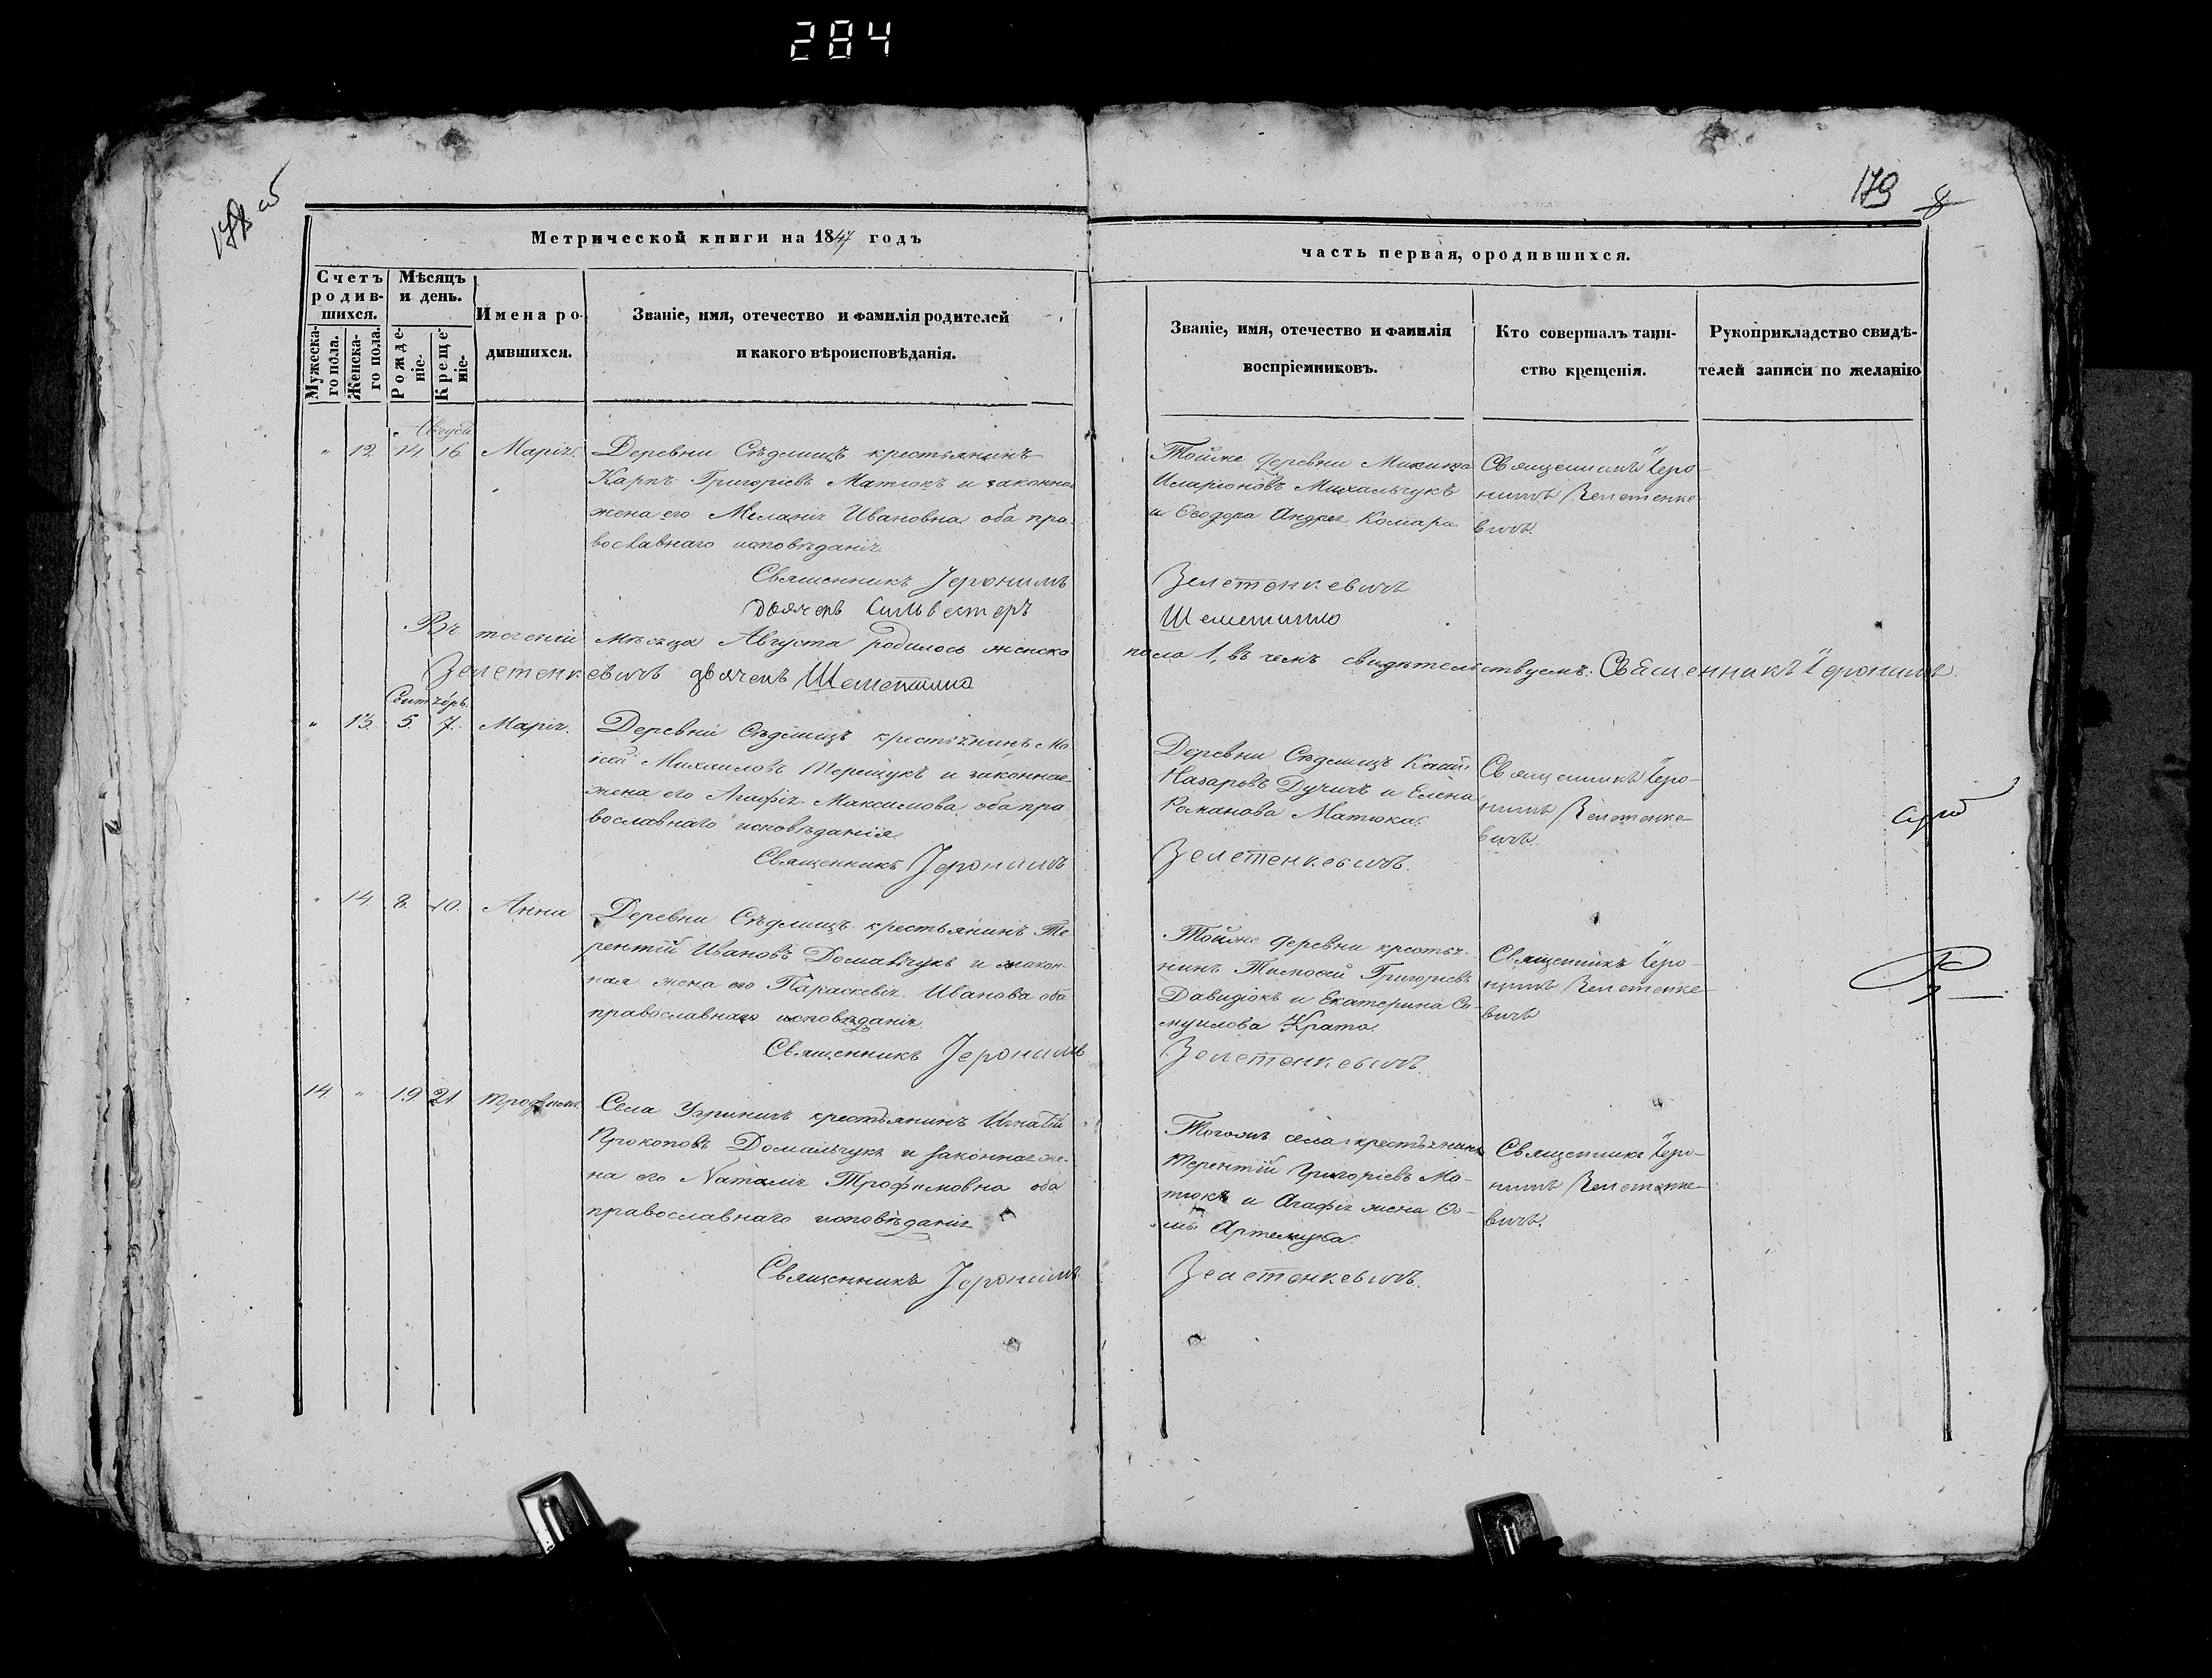 284
179
8
Метрической книги на 1847 годъ
часть первая, ородившихся.
Счетъ родив-шихся.
Мѣсяцъ и день.
Мужеска-го пола.
Женска-го пола.
Рожде-ніе.
Креще-ніе.
Имена ро-дившихся.
Званіе, имя, отечество и фамилія родителей
и какого вѣроисповѣданія.
Званіе, имя, отечество и фамилія
воспріемниковъ.
Кто совершалъ таин-
ство крещенія.
Рукоприкладство свидѣ-
телей записи по желанію
Август.
" 12. 14. 16. Марія.
Деревни Сѣдлищъ крестьянинъ
Карпъ Григоріевъ Матюкъ и законная
жена его Меланія Ивановна оба пра-
вославнаго исповѣданія.
Священникъ Іеронимъ
дьячекъ Сильвестеръ
Тойже деревни Микита
Иларіоновъ Михальчукъ
и Ѳеодора Андрея Комара
Зелетенкевичъ
Шеметилло
Священникъ Іеро-
нимъ Зелетенке-
вичъ.
Въ теченіи мѣсяца Августа родилось женска
пола 1, въ чемъ свидѣтельствуемъ: Священникъ Іеронимъ
Зелетенкевичъ дьячекъ Шеметилло
Сентябрь.
" 13. 5. 7. Марія.
Деревни Сѣдлищъ крестьянинъ Мо-
кей Михаиловъ Терещукъ и законная
жена его Агафія Максимова оба пра-
вославнаго исповѣданія
Священникъ Іеронимъ
Деревни Сѣдлищъ
Назаровъ Дучичъ и Елена
Романова Матюка.
Зелетенкевичъ.
Священникъ Іеро-
нимъ Зелетенке-
вичъ.
" 14. 8. 10. Анна
Деревни Сѣдлищъ крестьянинъ Те-
рентій Ивановъ Домальчукъ и закон-
ная жена его Параскевія Иванова оба
православнаго исповѣданія.
Священникъ Іеронимъ
Тойже деревни крестья-
нинъ Тимофей Григоріевъ
Давидюкъ и Екатерина Са-
муилова Крата.
Зелетенкевичъ.
Священникъ Іеро-
нимъ Зелетенке-
вичъ
14. " 19. 21. Трофимъ.
Села Угриничъ крестьянинъ Игнатій
Прокоповъ Домальчукъ и законная же-
на его Наталія Трофимовна оба
православнаго исповѣданія
Священникъ Іеронимъ
Тогожъ села крестьянинъ
Терентій Григоріевъ Ма-
тюкъ и Агафія жена Ѳо-
мы Артемука.
Зелетенкевичъ.
Священникъ Іеро-
нимъ Зелетенке-
вичъ.